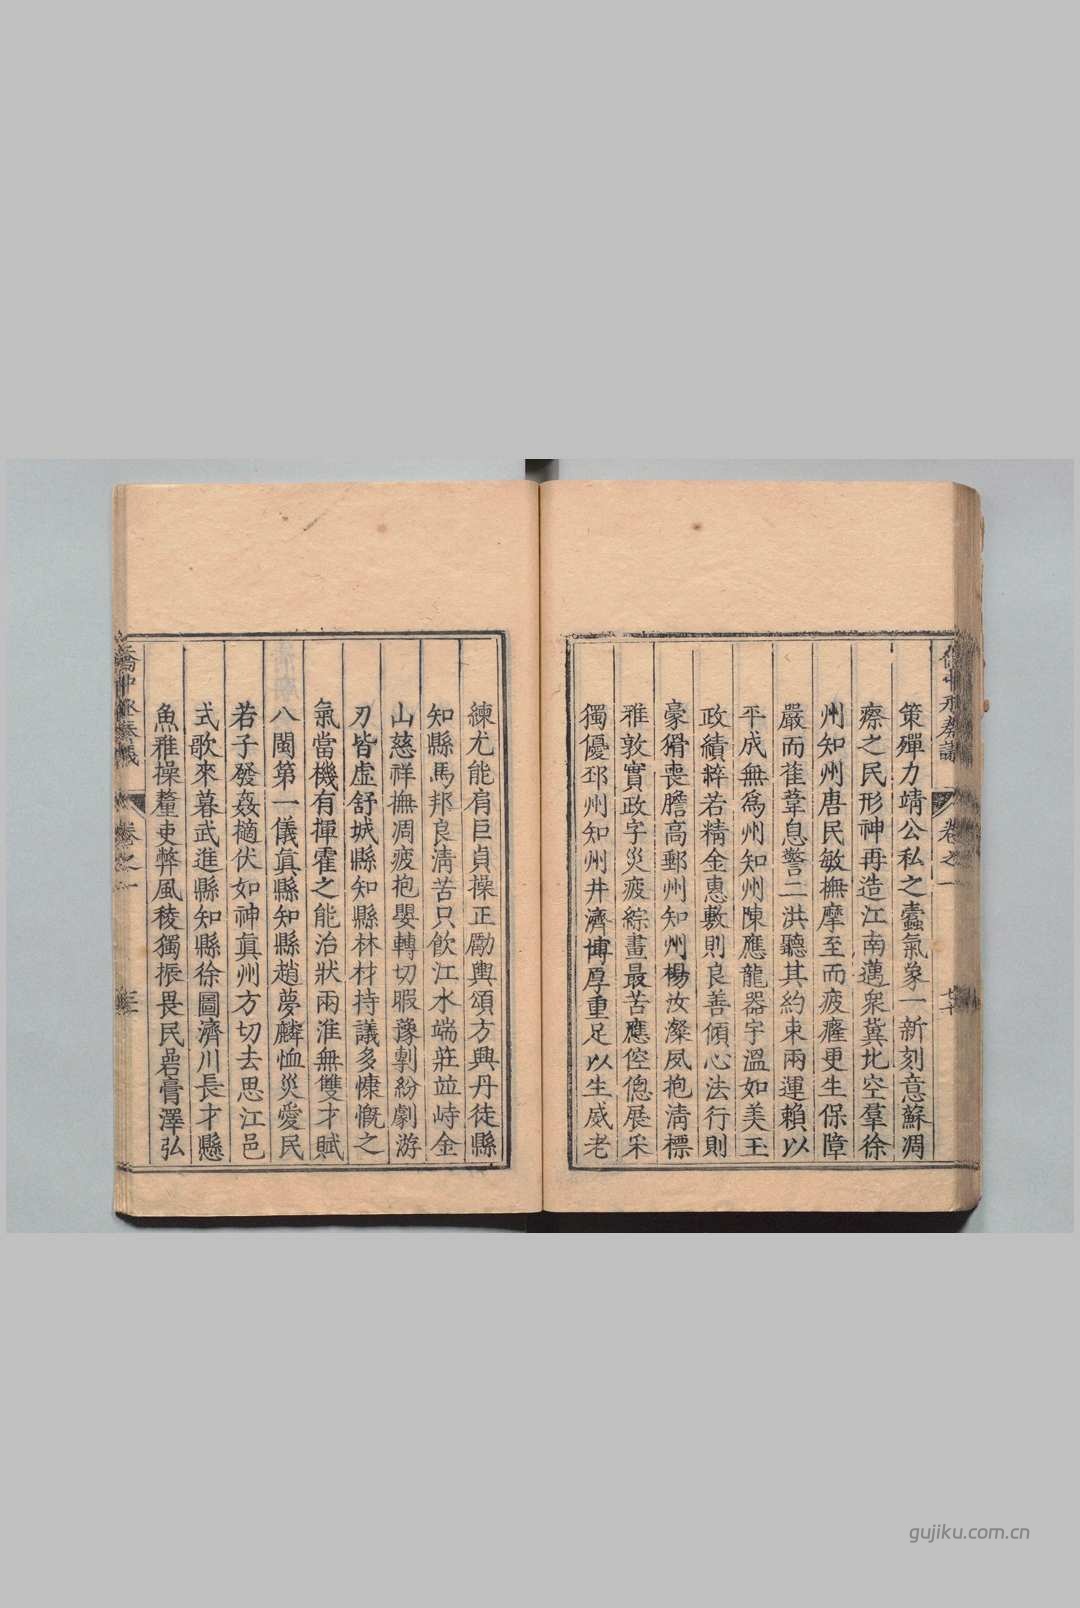 策殫力靖公私之蠹氣象一新刻意蘇凋
瘵之民形神再造江南邁衆冀北空羣徐
州知州唐民敏撫摩至而疲癃更生保障
嚴而萑葦息警二洪聽其約束兩運賴以
平成無爲州知州陳應龍器宇溫如美玉
政績粹若精金惠敷則良善傾心法行則
豪猾喪膽高郵州知州楊汝濼夙抱清標
雅敦實政字災疲綜畫最苦應倥傯展采
獨優邳州知州井濟博厚重足以生威老
卷之一
練尤能肩巨貞操正勵輿頌方興丹徒縣
知縣馬邦良清苦只飲江水端莊竝峙金
山慈祥撫凋疲抱嬰轉切暇豫剸紛劇游
刃皆虛舒城縣知縣林材持議多慷慨之
氣當機有揮霍之能治狀兩淮無雙才賦
八閩第一儀眞縣知縣趙夢麟恤災愛民
若子發姦擿伏如神眞州方切去思江邑
式歌來暮武進縣知縣徐圖濟川長才懸
魚雅操釐吏弊風稜獨振畏民碞膏澤弘
卷之一
三
gujiku.com.cn